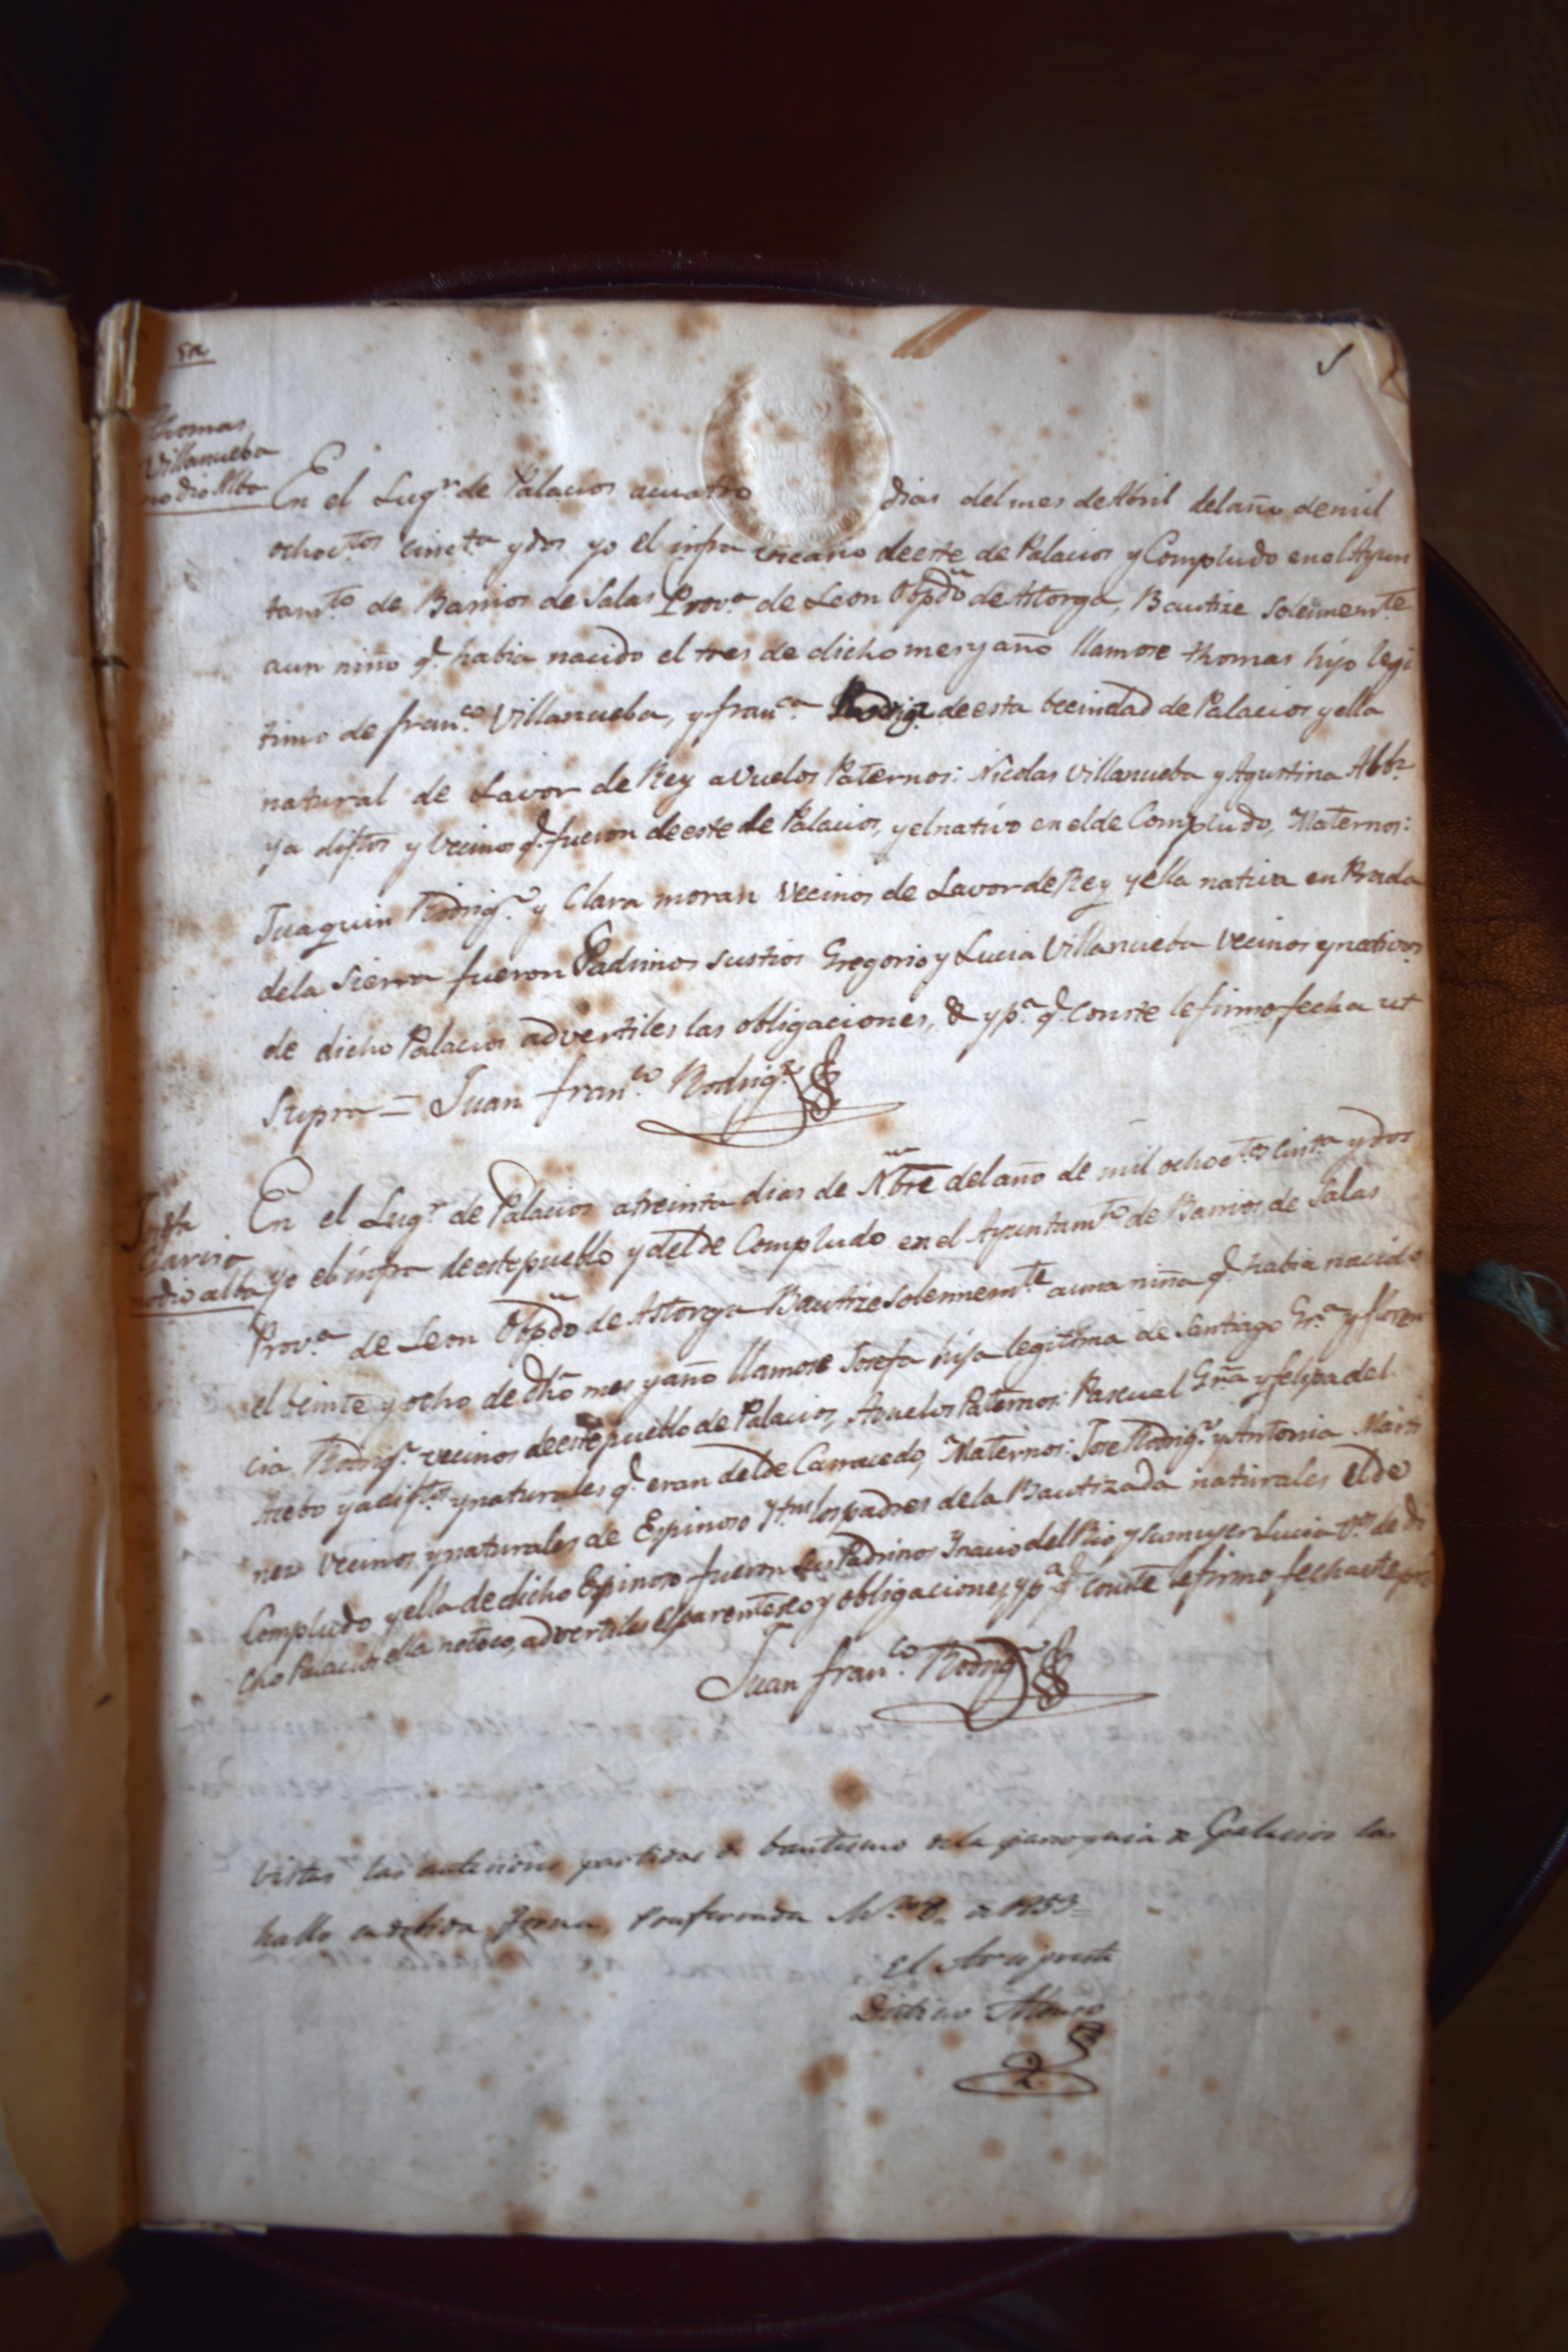 5
Thomas
Villanueba
no dio Alba
En el Lugr. de Palacios acuatro dias del mes de Abril del año demil
ochoctos. cincta. ydos yo el infra vicario deeste de Palacios y Compludo enel Ayun
tamto. de Barrios de Salas Prova. de Leon Obpdo. de Astorga, Bautize solennemte.
aun niño q. habia nacido el tres de dicho mes y año llamose thomas hijo legi
timo de franco. Villanueba, y franca. Rodrigz. deesta becindad de Palacios y ella
natural de Lavor de Rey avuelos Paternos: Nicolas Villanueba y Agustina Albz.
ya diftos y Vecinos q. fueron deeste de Palacios, y el nativo en el de Compludo, Maternos:
Juaquin Rodrigz. y Clara moran Vecinos de Lavor de Rey y ella nativa en Prada
dela Sierra fueron Padrinos sustios Gregorio y Lucia Villanueba vecinos y nativos
de dicho Palacios advertiles las obligaciones, & y pa. q. conste lo firmo fecha ut
Supra = Juan franco. Rodrigz.
Garcia
no dio alba
En el Lugr. de Palacios atreinta dias de Nbre del año de mil ochoctos. cinta. ydos
yo el infra deeste pueblo y del de Compludo en el Ayuntamto. de Barrios de Salas
Prova. de Leon Obpdo. de Astorga Bautize solennemte. auna niña q. habia nacido
el beinte y ocho de dho mes y año llamose Josefa hija legitima de Santiago Gra. y floren
cia Rodrigz. vecinos deeste pueblo de Palacios, Avuelos Paternos: Pascual Gra. y felipa del
Acebo ya diftos. y naturales q. eran del de Carracedo, Maternos: Jose Rodrigz. y Antonia Marti
nez Vecinos y naturales de Espinoso los padres dela Bautizada naturales el de
Compludo y ella de dicho Espinoso fueron sus Padrinos Ynacio del Rio y su muger Lucia de di
cho Palacios ella notoco, advertiles el parentesco y obligaciones, y pa. q. conste lo firmo fecha
Juan franco. Rodrigz.
Vistas las anteriores partidas de bautismo de la parroquia de Palacios las
hallo en debida forma, Ponferrada de 1853=
El Arcipreste
Alonso